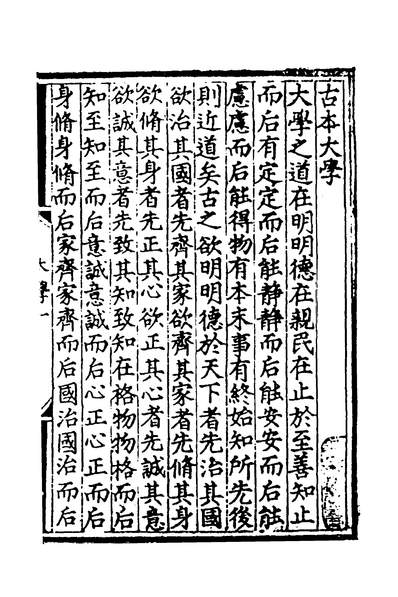 古本大學
大學之道在明明德在親民在止於至善知止
而后有定定而后能静静而后能安安而后能
慮慮而后能得物有本末事有終始知所先後
則近道矣古之欲明明德於天下者先治其國
欲治其國者先齊其家欲齊其家者先脩其身
欲脩其身者先正其心欲正其心者先誠其意
欲誠其意者先致其知致知在格物物格而后
知至知至而后意誠意誠而后心正心正而后
身脩身脩而后家齊家齊而后國治國治而后
大學一